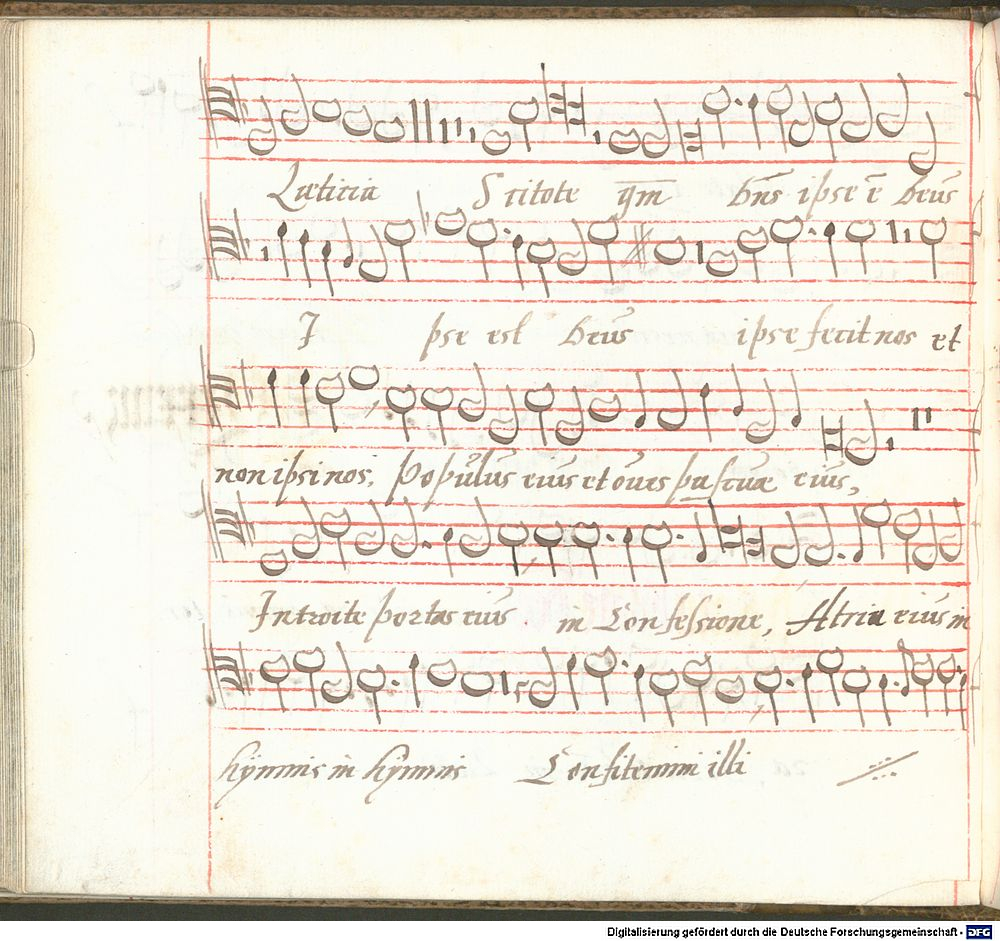 Læticia Scitote qm̄ Dn̄s ipse ē Deus
Ipse est Deus ipse fecit nos et
non ipsi nos, Populus eius et oues pascuæ eius,
Introite portas eius in Confessione, Atria eius in
hÿmnis in hÿmnis Confitemini illi
Digitalisierung gefördert durch die Deutsche Forschungsgemeinschaft - DFG